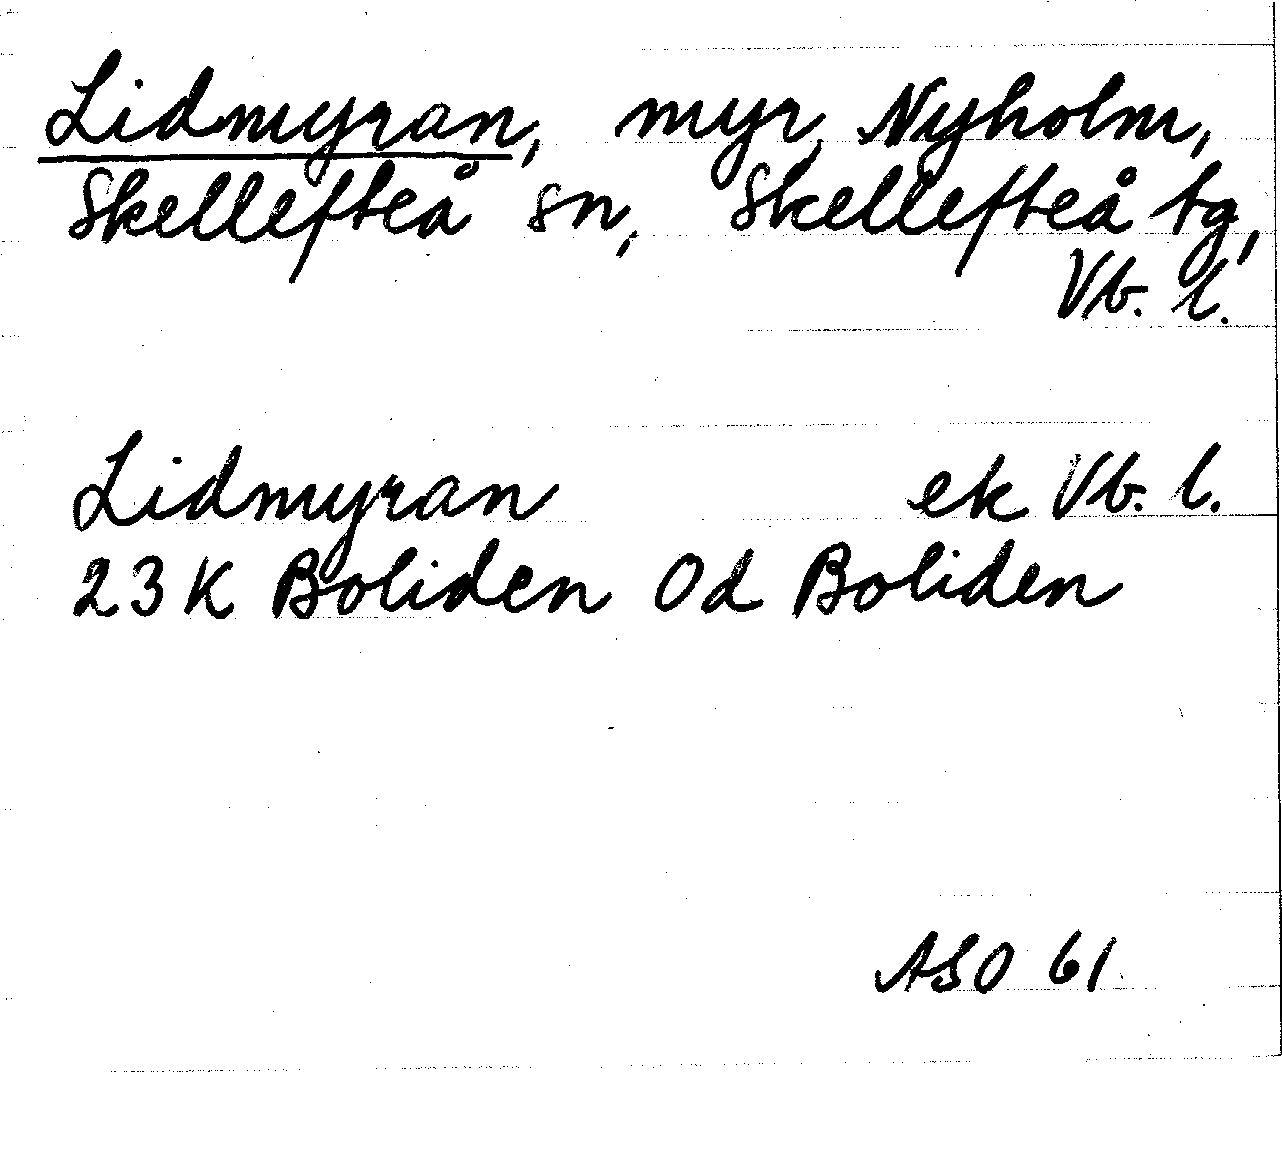 Lidmyran, myr, Nyholm,
Skellefteå sn, Skellefteå tg,
Vb. l.
Lidmyran ek Vb. l.
23K Boliden Od Boliden
ASO 61